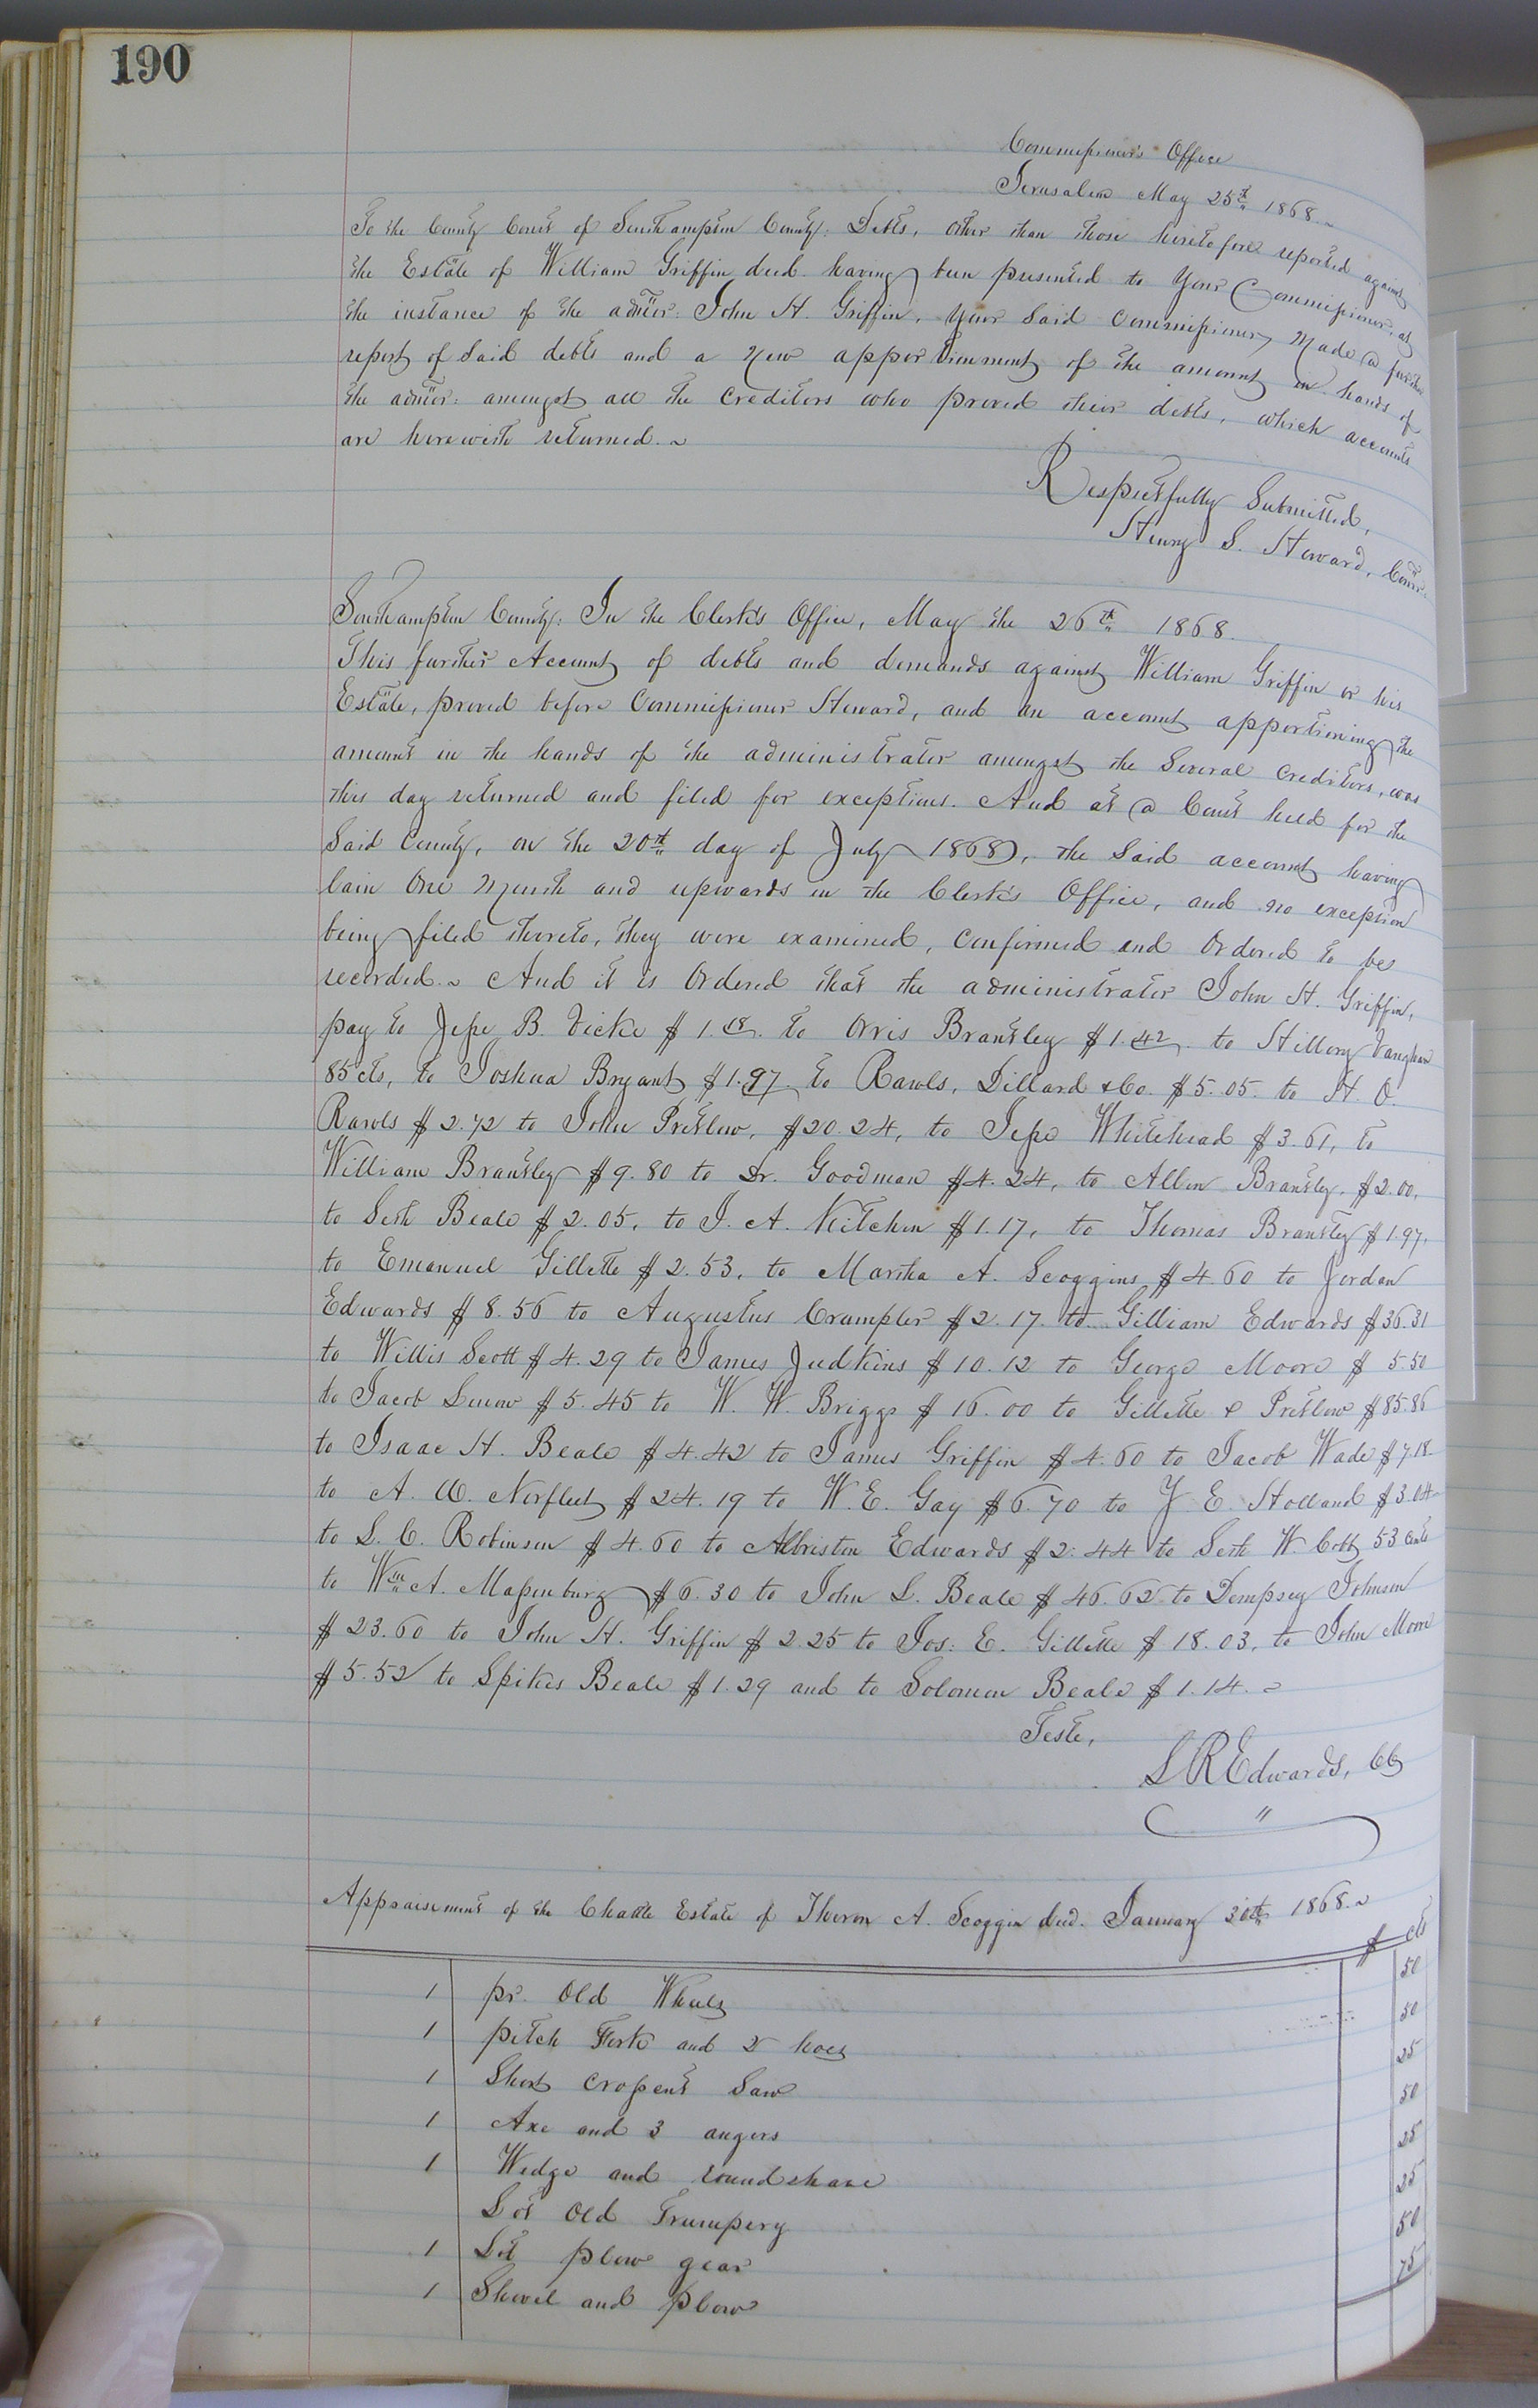 190
Commissioner's Office
Jerusalem May 25th 1868.
To the County Court of Southampton County: Debts, other than those heretofore reported against
the Estate of William Griffin decd. having been presented to Your Commissioner, at
the instance of the admor: John H. Griffin, your said commissioner, made a further
report of said debts and a new apportionment of the amount in hands of
the admor: amongst all the creditors who proved their debts, which accounts
are herewith returned.
Respectfully Submitted,
Henry S. Steward, Comr.
Southampton County: In the Clerk's Office, May the 26th 1868.
This further Account of debts and demands against William Griffin or his
Estate, proved before Commissioner Steward, and an account apportioning the
amount in the hands of the administrator amongst the several creditors, was
this day returned and filed for exceptions. And at a Court held for the
said County, on the 20th day of July 1868, the said account having
lain one month and upwards in the Clerk's Office, and no exception
being filed thereto, they were examined, confirmed and ordered to be
recorded. And it is ordered that the administrator John H. Griffin,
pay to Jesse B. Vick $1.18. to Orris Brantley $1.42. to Hillory Vaughan
85 cts, to Joshua Bryant $1.97. to Rawls, Dillard & Co. $5.05. to H. O.
Rawls $2.72 to John Pretlow, $20.24, to Jesse Whitehead $3.61, to
William Brantley $9.80 to Dr. Goodman $4.24, to Allen Brantley, $2.00,
to Seth Beale $2.05, to J. A. Kitchen $1.17, to Thomas Brantley $1.97,
to Emanuel Gillette $2.53, to Martha A. Scoggins $4.60 to Jordan
Edwards $8.56 to Augustus Crumpler $2.17. to Gilliam Edwards $36.31
to Willis Scott $4.29 to James Judkins $10.12 to George Moore $5.50
to Jacob $5.45 to W. W. Briggs $16.00 to Gillette & Pretlow $85.86
to Isaac H. Beale $4.42 to James Griffin $4.60 to Jacob Wade $7.18
to A. Norfleet $24.19 to W. E. Gay $6.70 to J. E. Holland $3.04
to L. C. Robinson $4.60 to Albriston Edwards $2.44 to Seth W. Cobb 53 cents
to Wm A. Massenburg $6.30 to John L. Beale $46.62 to Dempsey Johnson
$23.60 to John H. Griffin $2.25 to Jos: E. Gillette $18.03, to John Moore
$5.52 to Spikes Beale $1.29 and to Solomon Beale $1.14.
Teste,
L R Edwards, CC
Appraisement of the Chattle Estate of Theron A. Scoggin decd. January 30th 1868.
$ cts
1 pr. Old Wheels 50
1 pitch Fork and 2 hoes 50
1 Short cropent Saw 25
1 Axe and 3 augers 50
1 Wedge and round shave 25
Lot Old Trumpery 25
1 Set plow gear 50
1 Shovel and plow 75